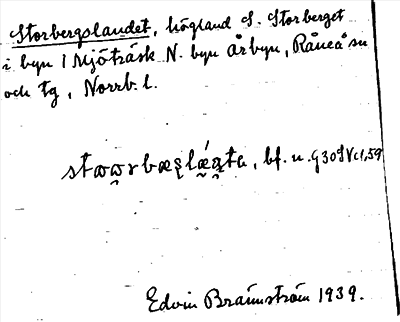 Storbergslandet, högland S. Storberget
i byn 1 Mjöträsk N. byn Årbyn, Råneå sn
och tg, Norrb. l.
bf. u. G 30
Edvin Brännström 1939.